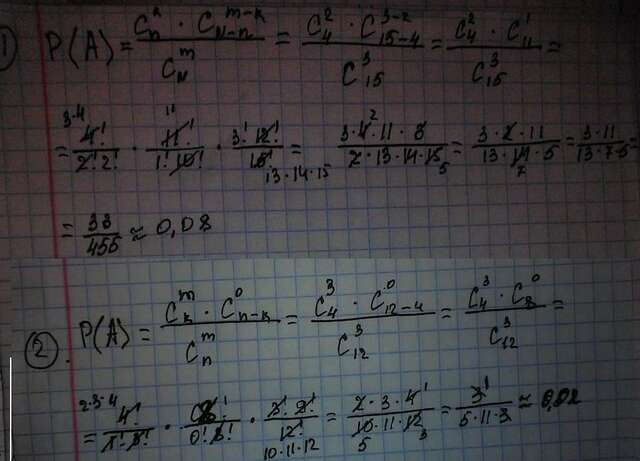 1) P(A) = (C_n^k · C_{N-n}^{m-k}) / C_N^m = (C_4^2 · C_{15-4}^{3-2}) / C_{15}^3 = (C_4^2 · C_{11}^1) / C_{15}^3 =
= 4!/(2! 2!) · 11!/(1! 10!) · (3! 12!)/15! = (3·4·11·3)/(2·13·14·15) = (3·2·11)/(13·14·5) = (3·11)/(13·7·5) =
= 33/455 ≈ 0,08
2. P(A) = (C_k^m · C_{n-k}^0) / C_n^m = (C_4^3 · C_{12-4}^0) / C_{12}^3 = (C_4^3 · C_8^0) / C_{12}^3 =
= 4!/(1! 3!) · 8!/(0! 8!) · (3! 9!)/12! = (2·3·4)/(10·11·12) = 1/(5·11·3) ≈ 0,02